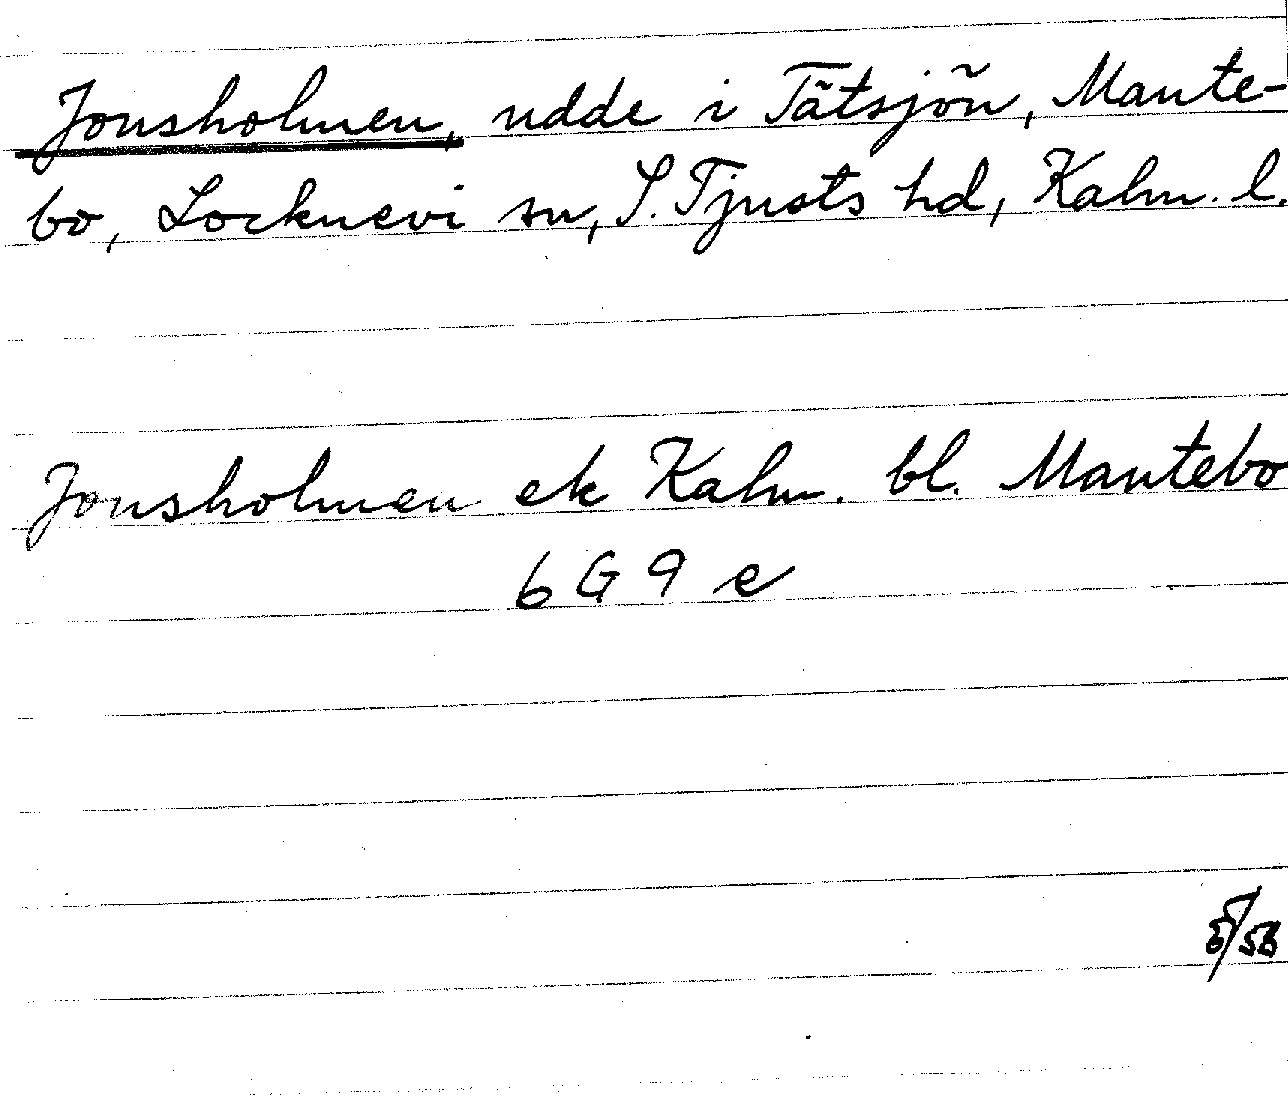 Jonsholmen, udde i Tätsjön, Mante-
bo, Locknevi sn, S. Tjusts hd, Kalm. l.
Jonsholmen ek Kalm. bl. Mantebo
6 G 9 e